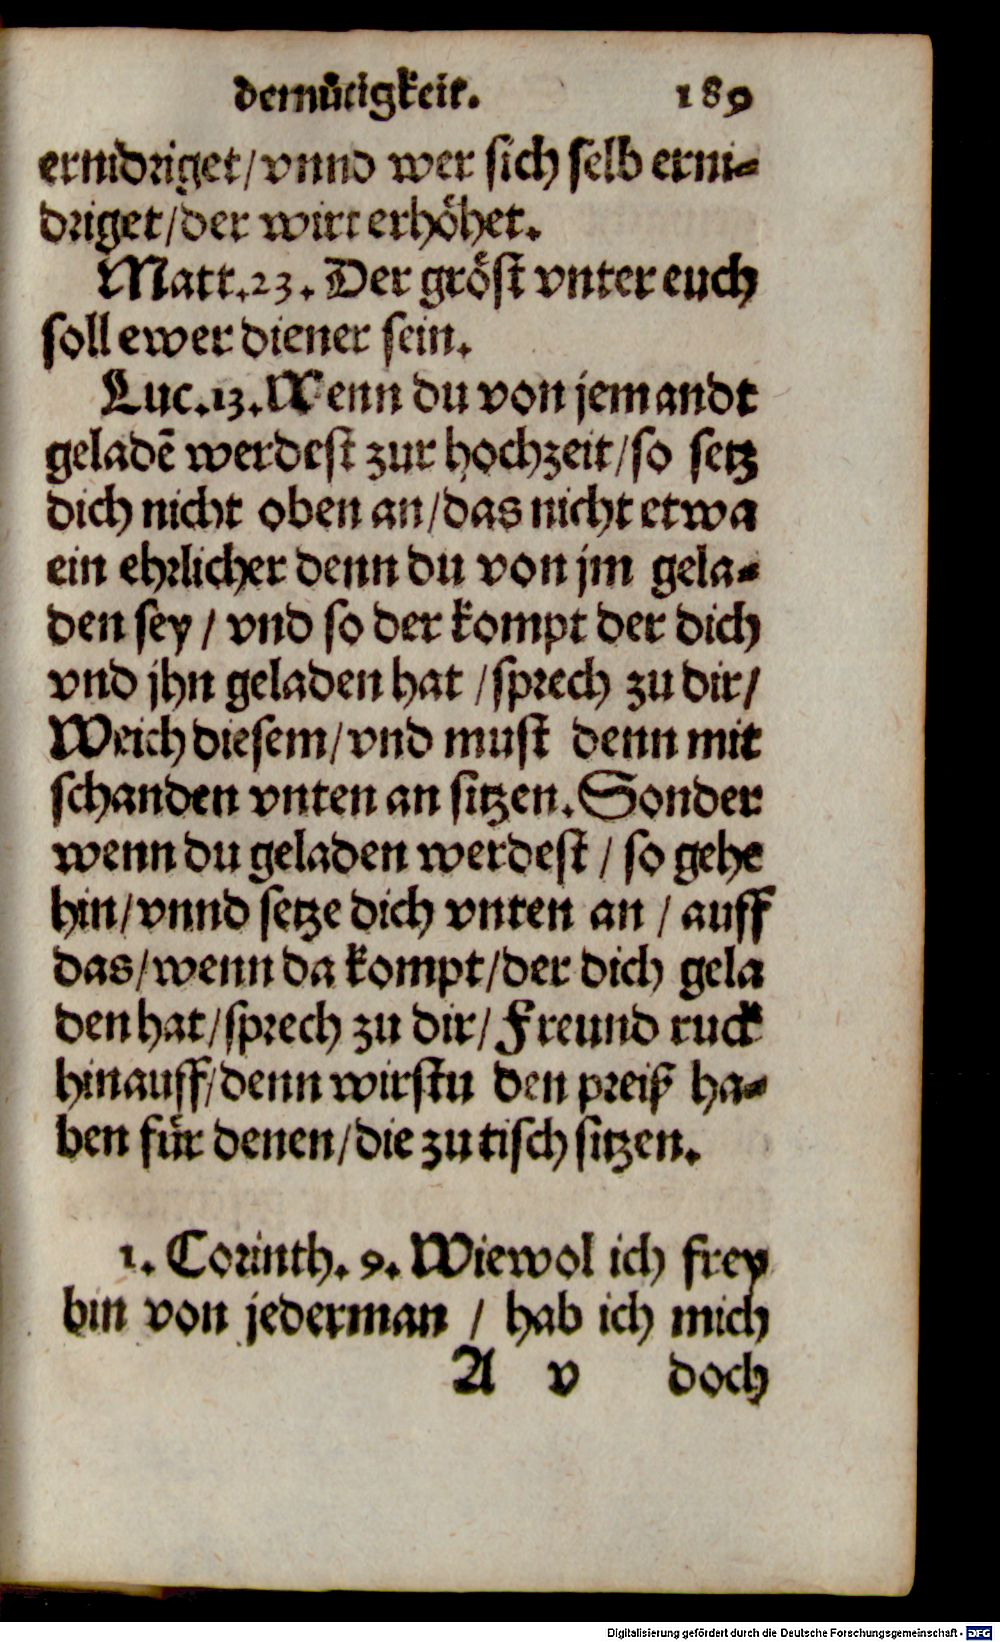 demuͤtigkeit. 189
ernidriget/vnnd wer sich selb erni-
driget/der wirt erhoͤhet.
Matt.23. Der groͤst vnter euch
soll ewer diener sein.
Luc.13. Wenn du von jemandt
geladē werdest zur hochzeit/so setz
dich nicht oben an/das nicht etwa
ein ehrlicher denn du von jm gela-
den sey/vnd so der kompt der dich
vnd jhn geladen hat/sprech zu dir/
Weich diesem/vnd must denn mit
schanden vnten an sitzen. Sonder
wenn du geladen werdest/so gehe
hin/vnnd setze dich vnten an/auff
das/wenn da kompt/der dich gela
den hat/sprech zu dir/Freund ruck
hinauff/denn wirstu den preiß ha-
ben fuͤr denen/die zu tisch sitzen.
1. Corinth. 9. Wiewol ich frey
bin von jederman / hab ich mich
A v doch
Digitalisierung gefördert durch die Deutsche Forschungsgemeinschaft - DFG